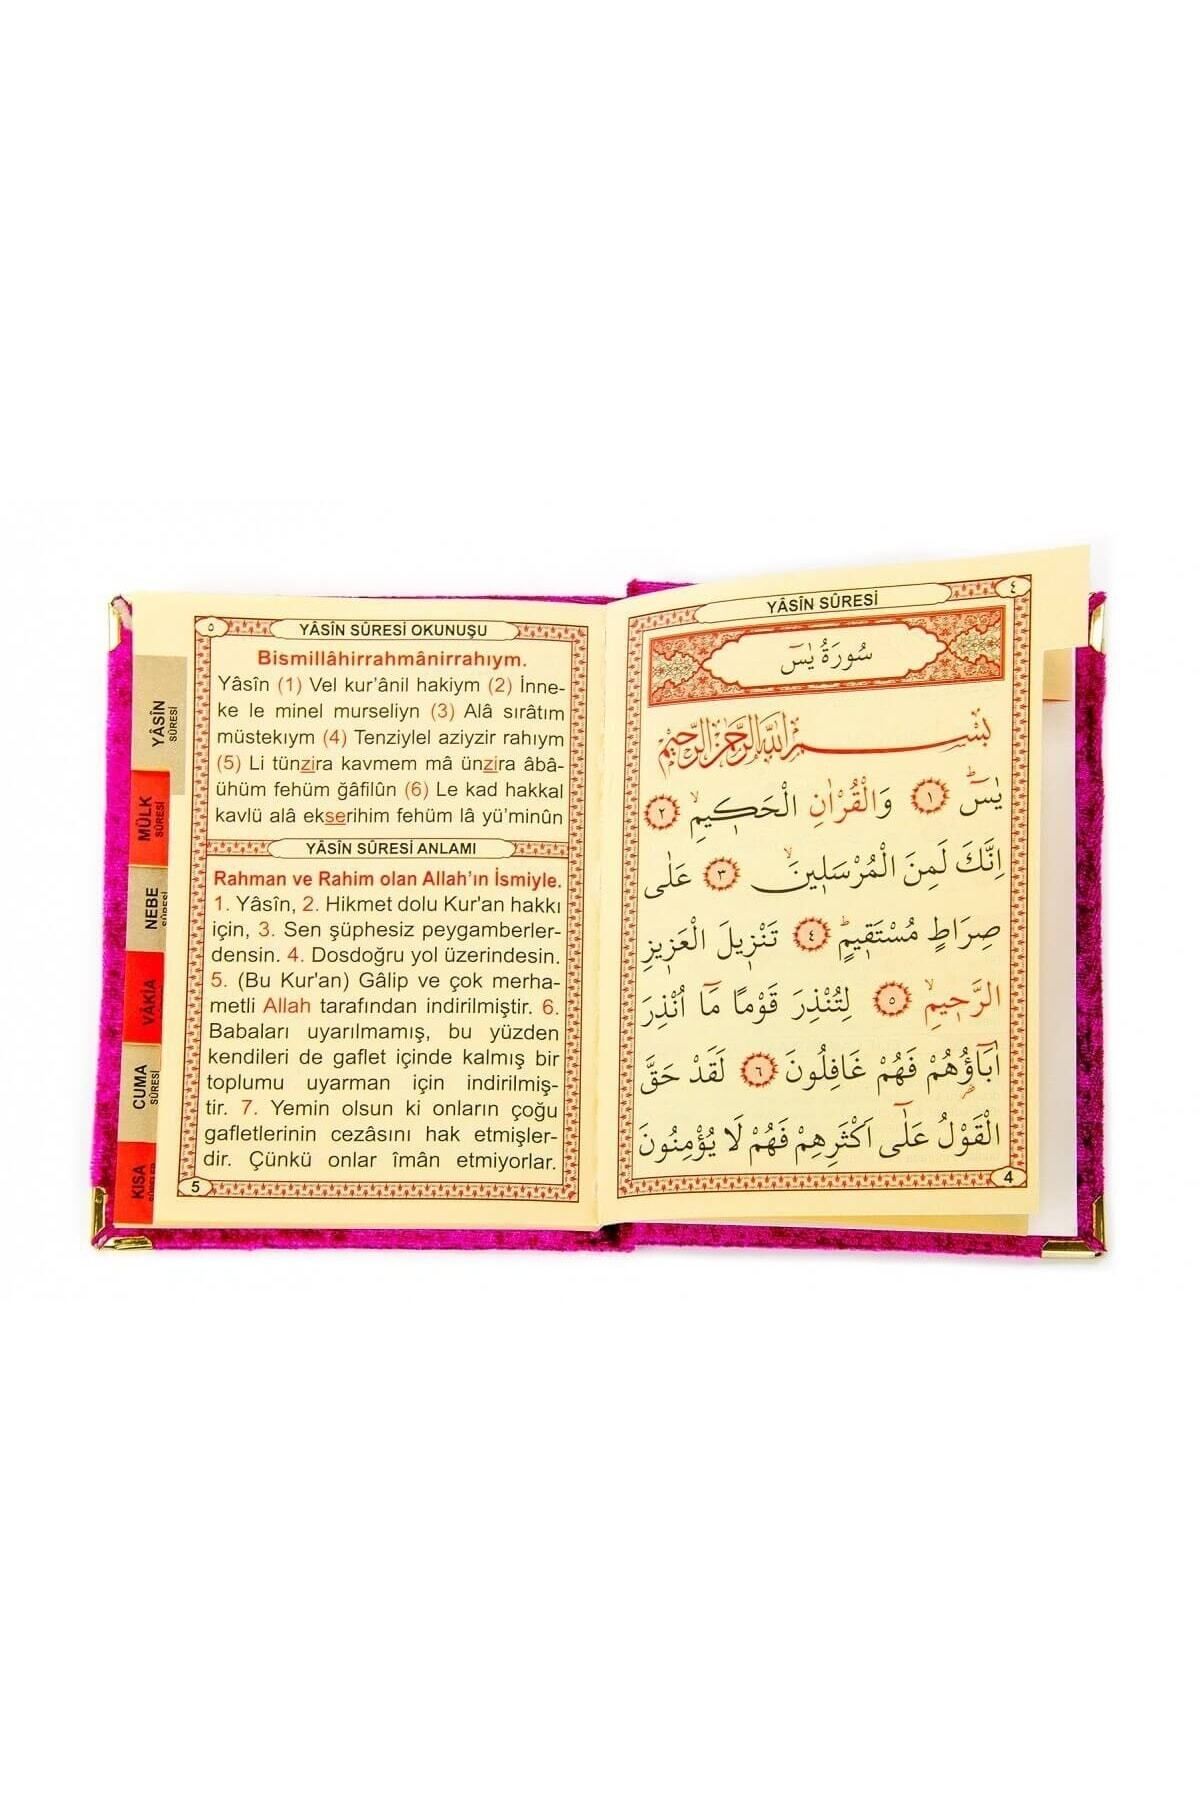 YÂSÎN
SÛRESİ
MÜLK
SÛRESİ
NEBE
SÛRESİ
VÂKIA
CUMA
SÛRESİ
KISA
٥
YÂSÎN SÛRESİ OKUNUŞU
Bismillâhirrahmânirrahıym.
Yâsîn (1) Vel kur’ânil hakiym (2) İnne-
ke le minel murseliyn (3) Alâ sırâtım
müstekıym (4) Tenziylel aziyzir rahıym
(5) Li tünzira kavmem mâ ünzira âbâ-
ühüm fehüm ğâfilûn (6) Le kad hakkal
kavlü alâ ekserihim fehüm lâ yü’minûn
YÂSÎN SÛRESİ ANLAMI
Rahman ve Rahim olan Allah’ın İsmiyle.
1. Yâsîn, 2. Hikmet dolu Kur'an hakkı
için, 3. Sen şüphesiz peygamberler-
densin. 4. Dosdoğru yol üzerindesin.
5. (Bu Kur'an) Gâlip ve çok merha-
metli Allah tarafından indirilmiştir. 6.
Babaları uyarılmamış, bu yüzden
kendileri de gaflet içinde kalmış bir
toplumu uyarman için indirilmiş-
tir. 7. Yemin olsun ki onların çoğu
gafletlerinin cezâsını hak etmişler-
dir. Çünkü onlar îmân etmiyorlar.
5
٤
YÂSÎN SÛRESİ
سُورَةُ يٰسٓ
بِسْمِ اللّٰهِ الرَّحْمٰنِ الرَّحِيمِ
يٰسٓ ۚ ﴿١﴾ وَالْقُرْاٰنِ الْحَكِيمِۙ ﴿٢﴾
اِنَّكَ لَمِنَ الْمُرْسَلِينَۙ ﴿٣﴾ عَلٰى
صِرَاطٍ مُسْتَقِيمٍۜ ﴿٤﴾ تَنْزِيلَ الْعَزِيزِ
الرَّحِيمِۙ ﴿٥﴾ لِتُنْذِرَ قَوْمًا مَٓا اُنْذِرَ
اٰبَٓاؤُ۬هُمْ فَهُمْ غَافِلُونَ ﴿٦﴾ لَقَدْ حَقَّ
الْقَوْلُ عَلٰٓى اَكْثَرِهِمْ فَهُمْ لَا يُؤْمِنُونَ
4